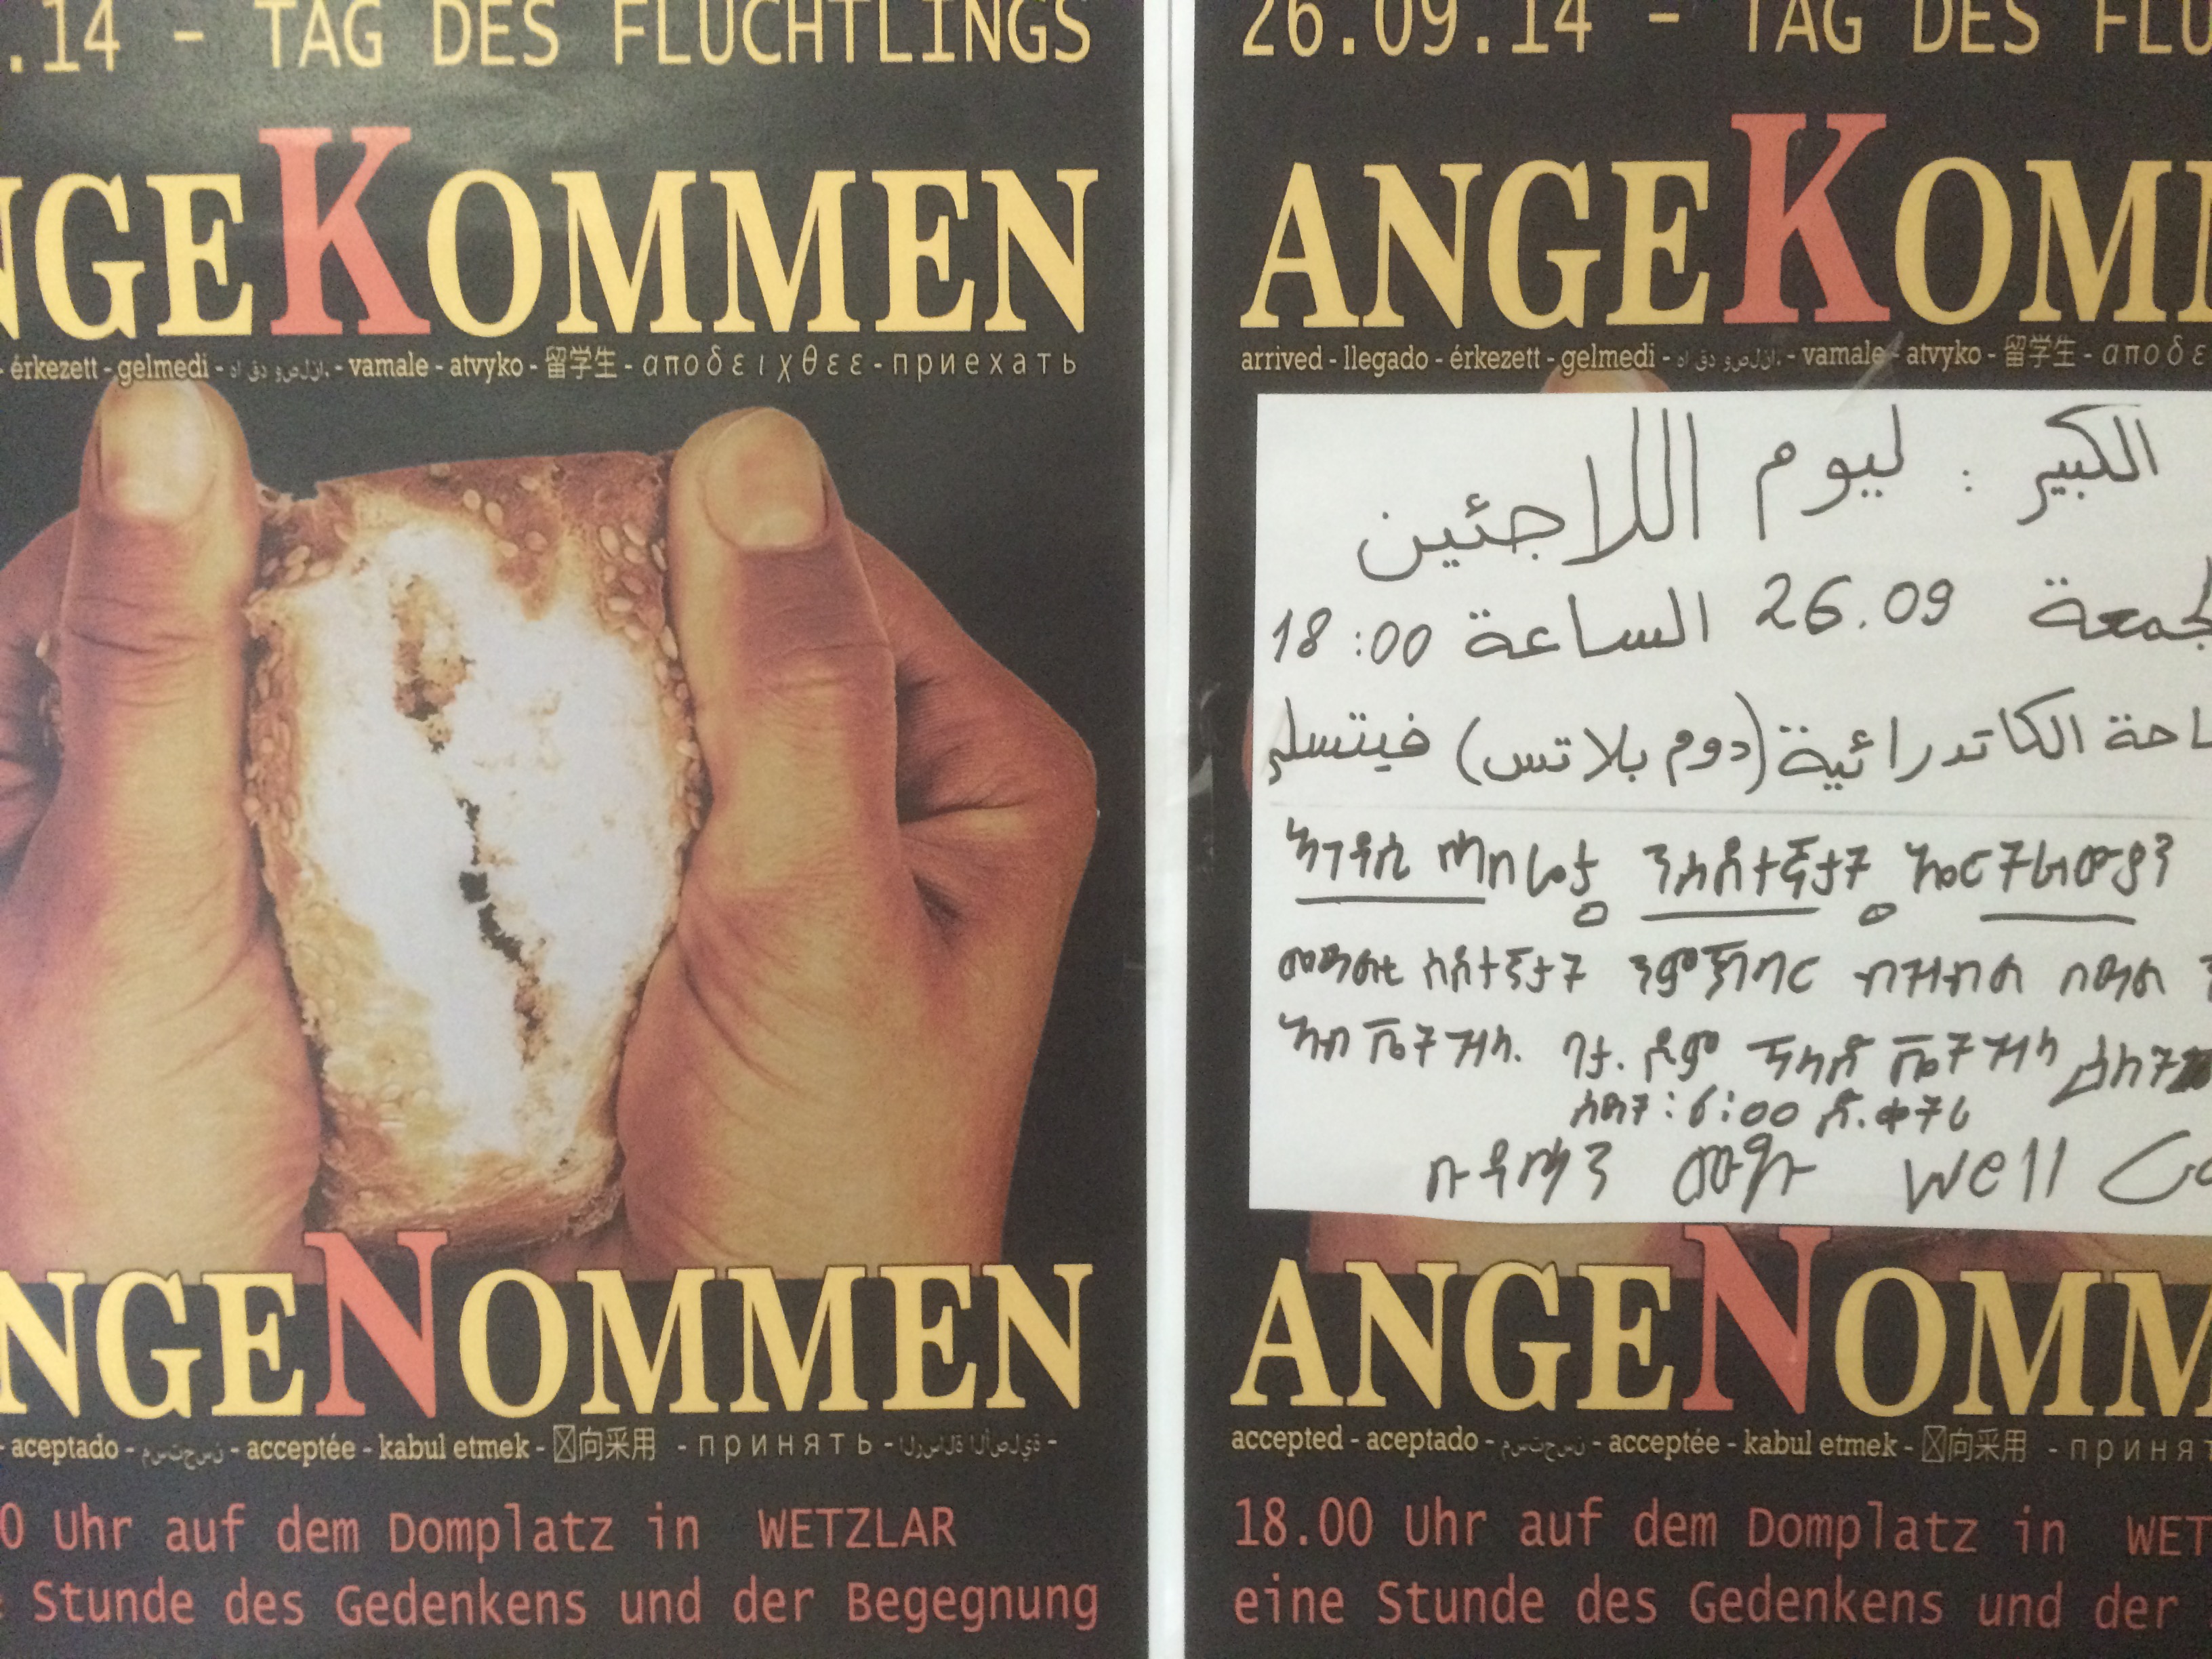 .14 - TAG DES FLÜCHTLINGS
NGEKOMMEN
- érkezett - gelmedi - ﻩﺍ ﻕﺩ ﻭﺹﻝﻥﺍ. - vamale - atvyko - 留学生 - αποδειχθεε - приехать
NGENOMMEN
- aceptado - ﻡﺱﺕﺡﺱﻥ - acceptée - kabul etmek - 向采用 - принять - ﺍﻝﺭﺱﺍﻝﺓ ﺍﻝﺃﺹﻝﻱﺓ -
0 Uhr auf dem Domplatz in WETZLAR
Stunde des Gedenkens und der Begegnung
26.09.14 - TAG DES FLÜ
ANGEKOMM
arrived - llegado - érkezett - gelmedi - ﻩﺍ ﻕﺩ ﻭﺹﻝﻥﺍ. - vamale - atvyko - 留学生 - αποδε
الكبير : ليوم اللاجئين
لجمعة 26.09 الساعة 18:00
احة الكاتدرائية (دوم بلاتس) فيتسلر
ንስደተኛታት ኤርትራውያን
ስደተኛታት
ሰዓት : 6:00 ድ.ቀትሪ
ብዳሓን ምጹ well Co
ANGENOMM
accepted - aceptado - ﻡﺱﺕﺡﺱﻥ - acceptée - kabul etmek - 向采用 - принят
18.00 Uhr auf dem Domplatz in WET
eine Stunde des Gedenkens und der